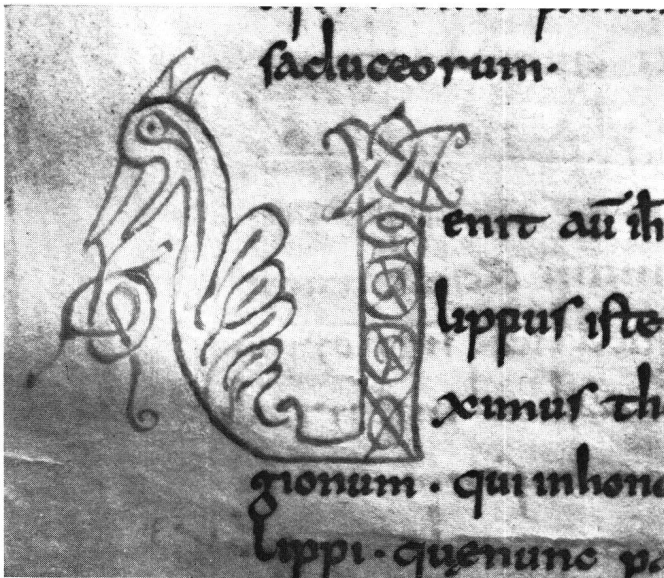 saduceorum.
Uenit aū ih
lippus iste
ximus th
gionum. qui inhono
lippi. quę nunc pa